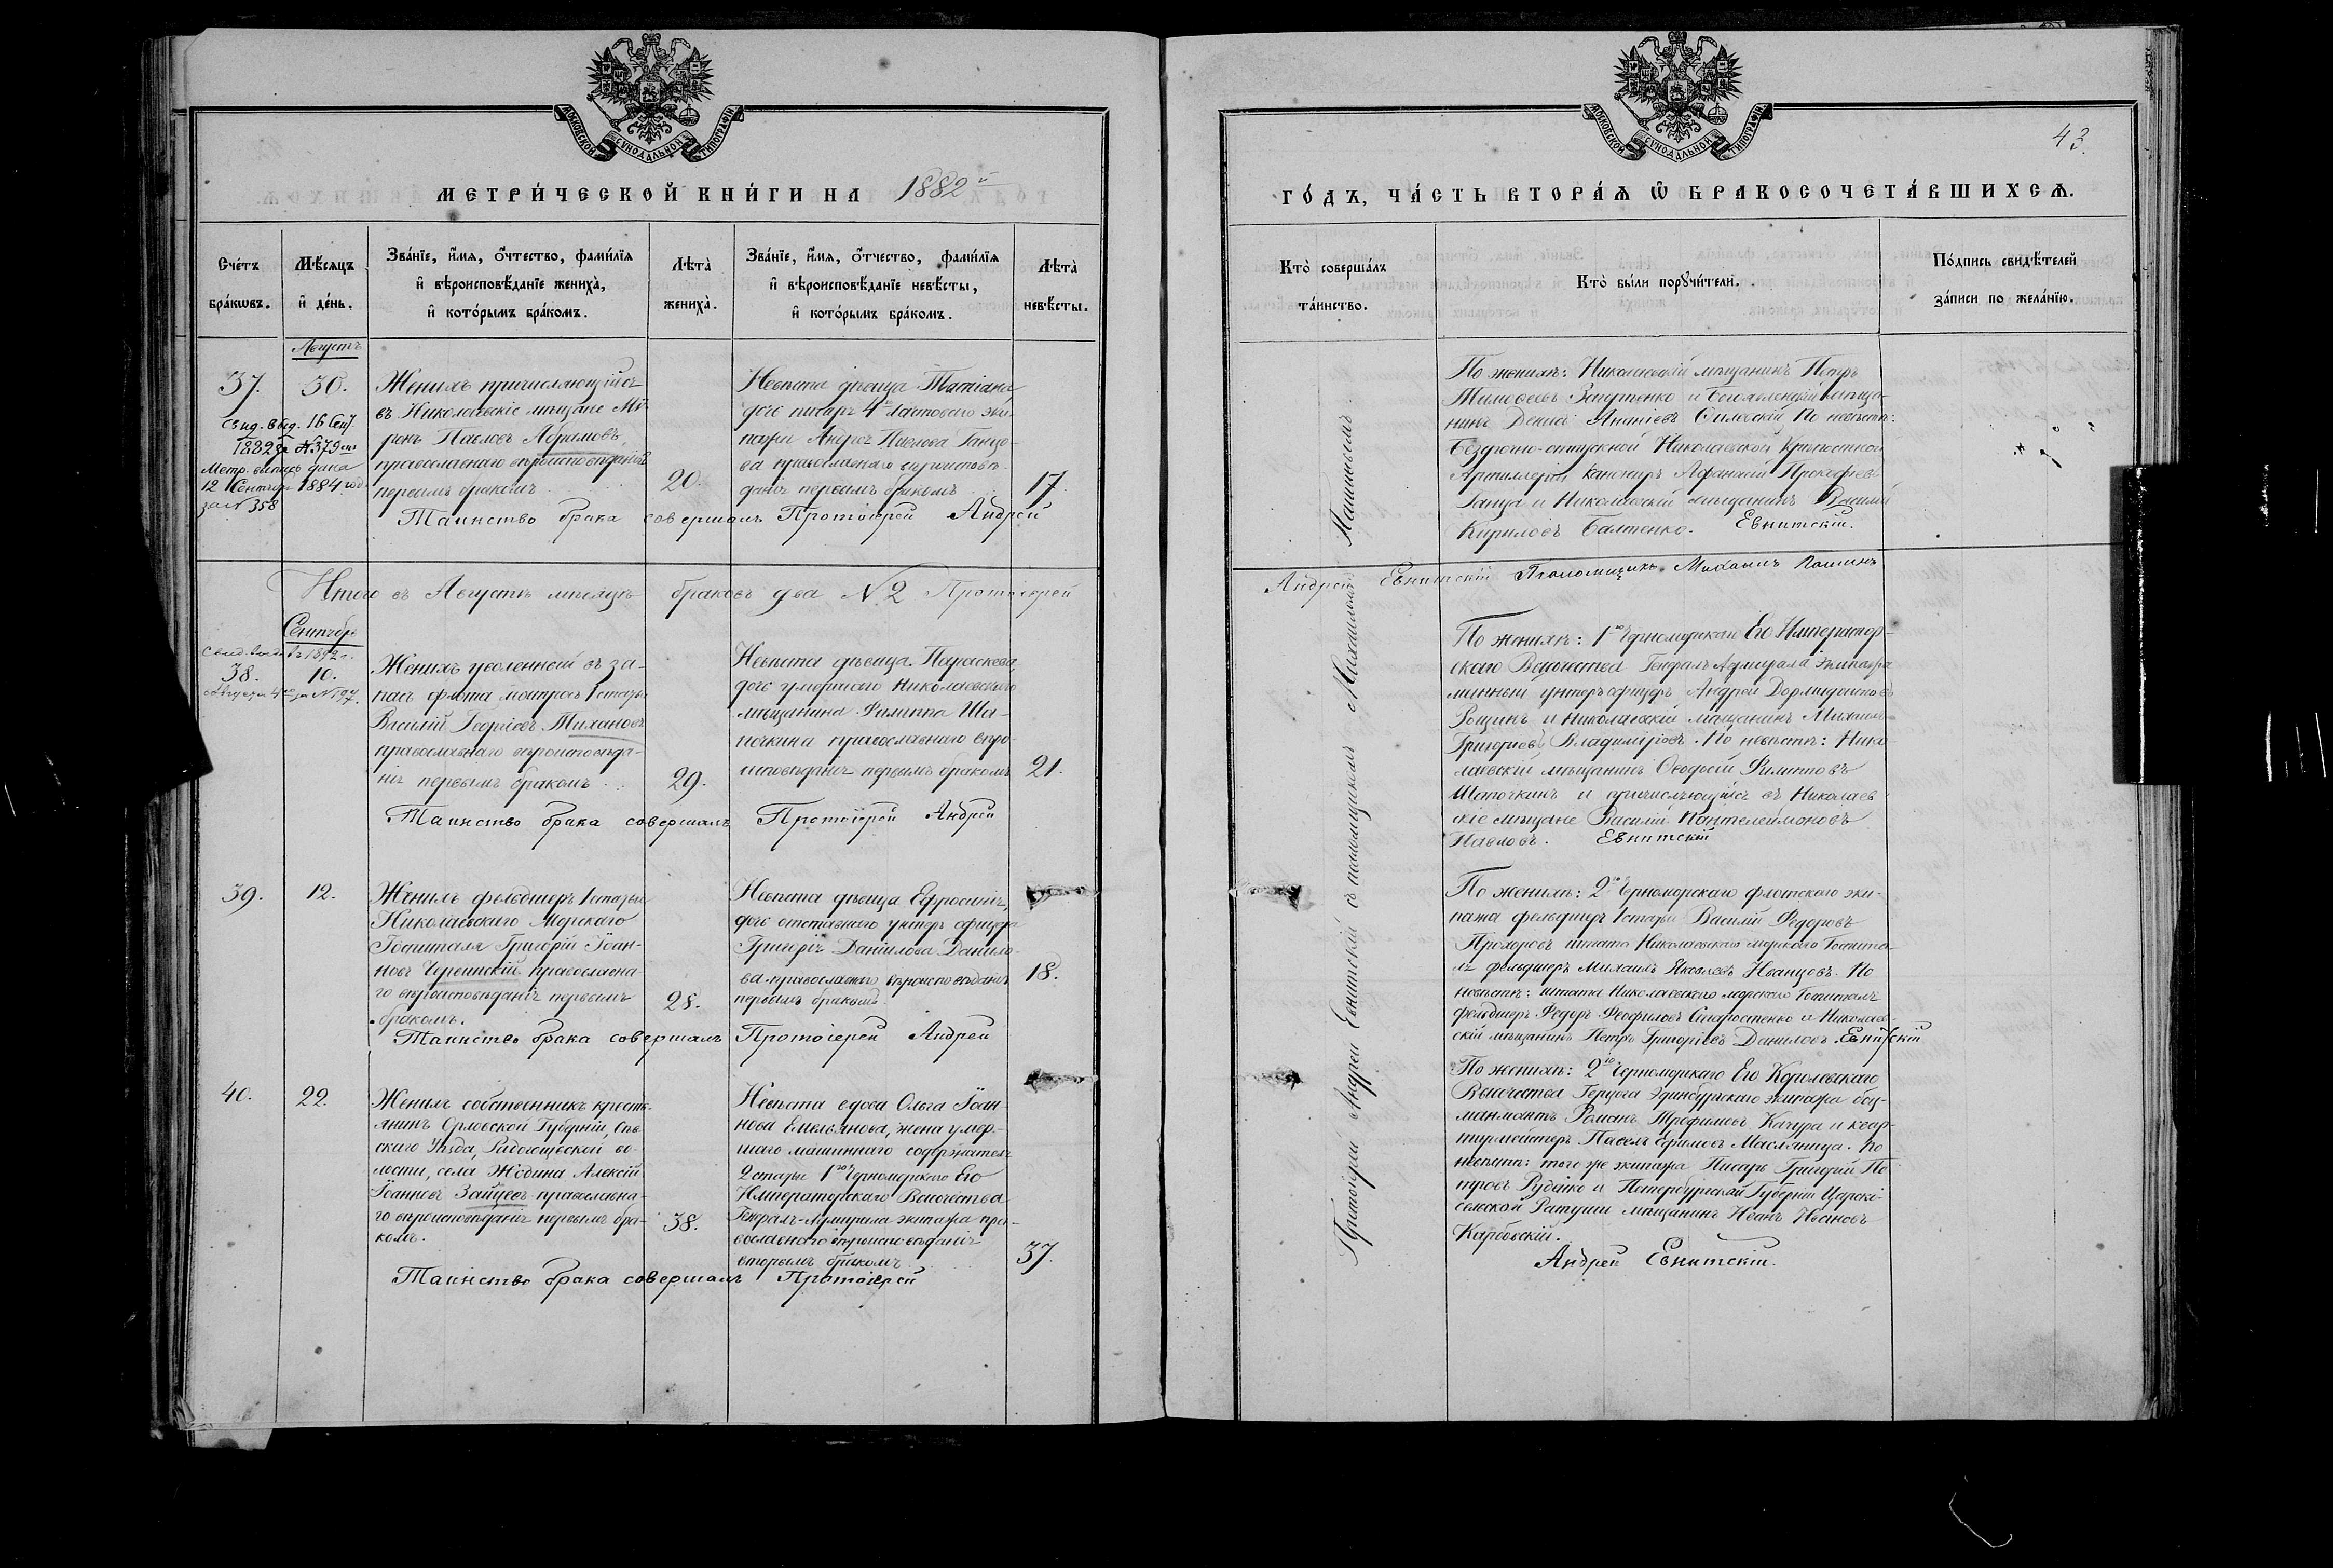 МОСКОВСКОЙ СѴНОДАЛЬНОЙ ТИПОГРАФІИ
МЕТРИ́ЧЕСКОЙ КНИ́ГИ НА 1882й
Сче́тъ бра́кѡвъ.
Мѣ́сяцъ и де́нь.
Зва́нїе, и́мѧ, о́тчество, фами́лїѧ
и вѣроисповѣ́данїе жениха̀,
и кото́рымъ бра́комъ.
Лѣта̀ жениха̀.
Зва́нїе, и́мѧ, о́тчество, фами́лїѧ
и вѣроисповѣ́данїе невѣ́сты,
и кото́рымъ бра́комъ.
Лѣта̀ невѣ́сты.
Августъ
37.
30.
Свид. выд. 16 Сент.
1882 г. №379
Метр. выпись дана
12 Сентября 1884 года
за № 358
Женихъ причисляющійся
въ Николаевскіе мѣщане Ми-
ронъ Павловъ Абрамовъ,
православнаго вѣроисповѣданія
первымъ бракомъ
20.
Невѣста дѣвица Татіана,
дочь писаря 4го флотскаго эки-
пажа Андрея Павлова Ганцо-
ва православнаго вѣроисповѣ-
данія первымъ бракомъ
17.
Таинство брака совершалъ Протоіерей Андрей
Итого въ Августѣ мѣсяцѣ браковъ два №2 Протоіерей
Сентябрь
38.
10.
Женихъ уволенный въ за-
пасъ флота матросъ 1 статьи
Василій Георгіевъ Тихановъ
православнаго вѣроисповѣда-
нія первымъ бракомъ
29.
Невѣста дѣвица Параскева
дочь умершаго Николаевскаго
мѣщанина Филиппа Ще-
точкина православнаго вѣро-
исповѣданія первымъ бракомъ
21.
Таинство брака совершалъ Протоіерей Андрей
39.
12.
Женихъ фельдшеръ 1 статьи
Николаевскаго Морскаго
Госпиталя Григорій Іоан-
новъ православна-
го вѣроисповѣданія первымъ
бракомъ.
28.
Невѣста дѣвица Ефросинія,
дочь отставнаго унтеръ офицера
Григорія Даніилова Данило-
ва православнаго вѣроисповѣданія
первымъ бракомъ
18.
Таинство брака совершалъ Протоіерей Андрей
40.
22.
Женихъ собственникъ кресть-
янинъ Орловской Губерніи, Сѣв-
скаго Уѣзда, Радогощской во-
лости, села Алексій
Іоанновъ Зайцевъ православна-
го вѣроисповѣданія первымъ бра-
комъ.
38.
Невѣста вдова Ольга Іоан-
нова Емельянова, жена умер-
шаго машиннаго содержателя
2 статьи 1го Черноморскаго Его
Императорскаго Высочества
Генералъ-Адмирала экипажа пра-
вославнаго вѣроисповѣданія
вторымъ бракомъ
37.
Таинство брака совершалъ Протоіерей
МОСКОВСКОЙ СѴНОДАЛЬНОЙ ТИПОГРАФІИ
43.
ГО́ДЪ, ЧА́СТЬ ВТОРА́Ѧ Ѡ БРАКОСОЧЕТА́ВШИХСѦ.
Кто̀ соверша́лъ
та́инство.
Кто̀ бы́ли порꙋчи́тели.
По́дпись свидѣ́телей
за́писи по жела́нїю.
Протоіерей Андрей Евнитскій съ псаломщикомъ Михаиломъ
По женихѣ: Николаевскій мѣщанинъ Петръ
Тимофеевъ и Богоявленскій мѣща-
нинъ Ананіевъ По невѣстѣ:
Безсрочно-отпускной Николаевской крѣпостной
Артиллеріи канониръ Афанасій Прокофьевъ
Ганжа и Николаевскій мѣщанинъ Василій
Кириловъ Балтенко. Евнитскій.
Андрей Евнитскій Псаломщикъ Михаилъ
По женихѣ: 1го Черноморскаго Его Император-
скаго Высочества Генералъ Адмирала экипажа
минный унтеръ офицеръ Андрей Дормидонтовъ
Рощинъ и Николаевскій мѣщанинъ Михаилъ
Григорьевъ Владиміровъ. По невѣстѣ: Нико-
лаевскій мѣщанинъ Ѳеодосій Филипповъ
Щеточкинъ и причисляющійся въ Николаев-
скіе мѣщане Василій Пантелеймоновъ
Павловъ. Евнитскій
По женихѣ: 2го Черноморскаго флотскаго эки-
пажа фельдшеръ 1 статьи Василій Федоровъ
Прохоровъ штата Николаевскаго морскаго Госпита-
ля фельдшеръ Михаилъ Яковлевъ Иванцовъ. По
невѣстѣ: штата Николаевскаго морскаго Госпиталя
фельдшеръ Федоръ Феофиловъ Старостенко и Николаев-
скій мѣщанинъ Петръ Григорьевъ Даниловъ. Евнитскій
По женихѣ: 2го Черноморскаго Его Королевскаго
Высочества Герцога Эдинбургскаго экипажа боц-
манматъ Романъ Трофимовъ Качура и квар-
тирмейстеръ Павелъ Ефимовъ Масляница. По
невѣстѣ: того же экипажа Писарь Григорій Пе-
тровъ Руденко и Петербургской Губерніи Царско-
сельской Ратуши мѣщанинъ Иванъ Ивановъ
Карбовскій.
Андрей Евнитскій.